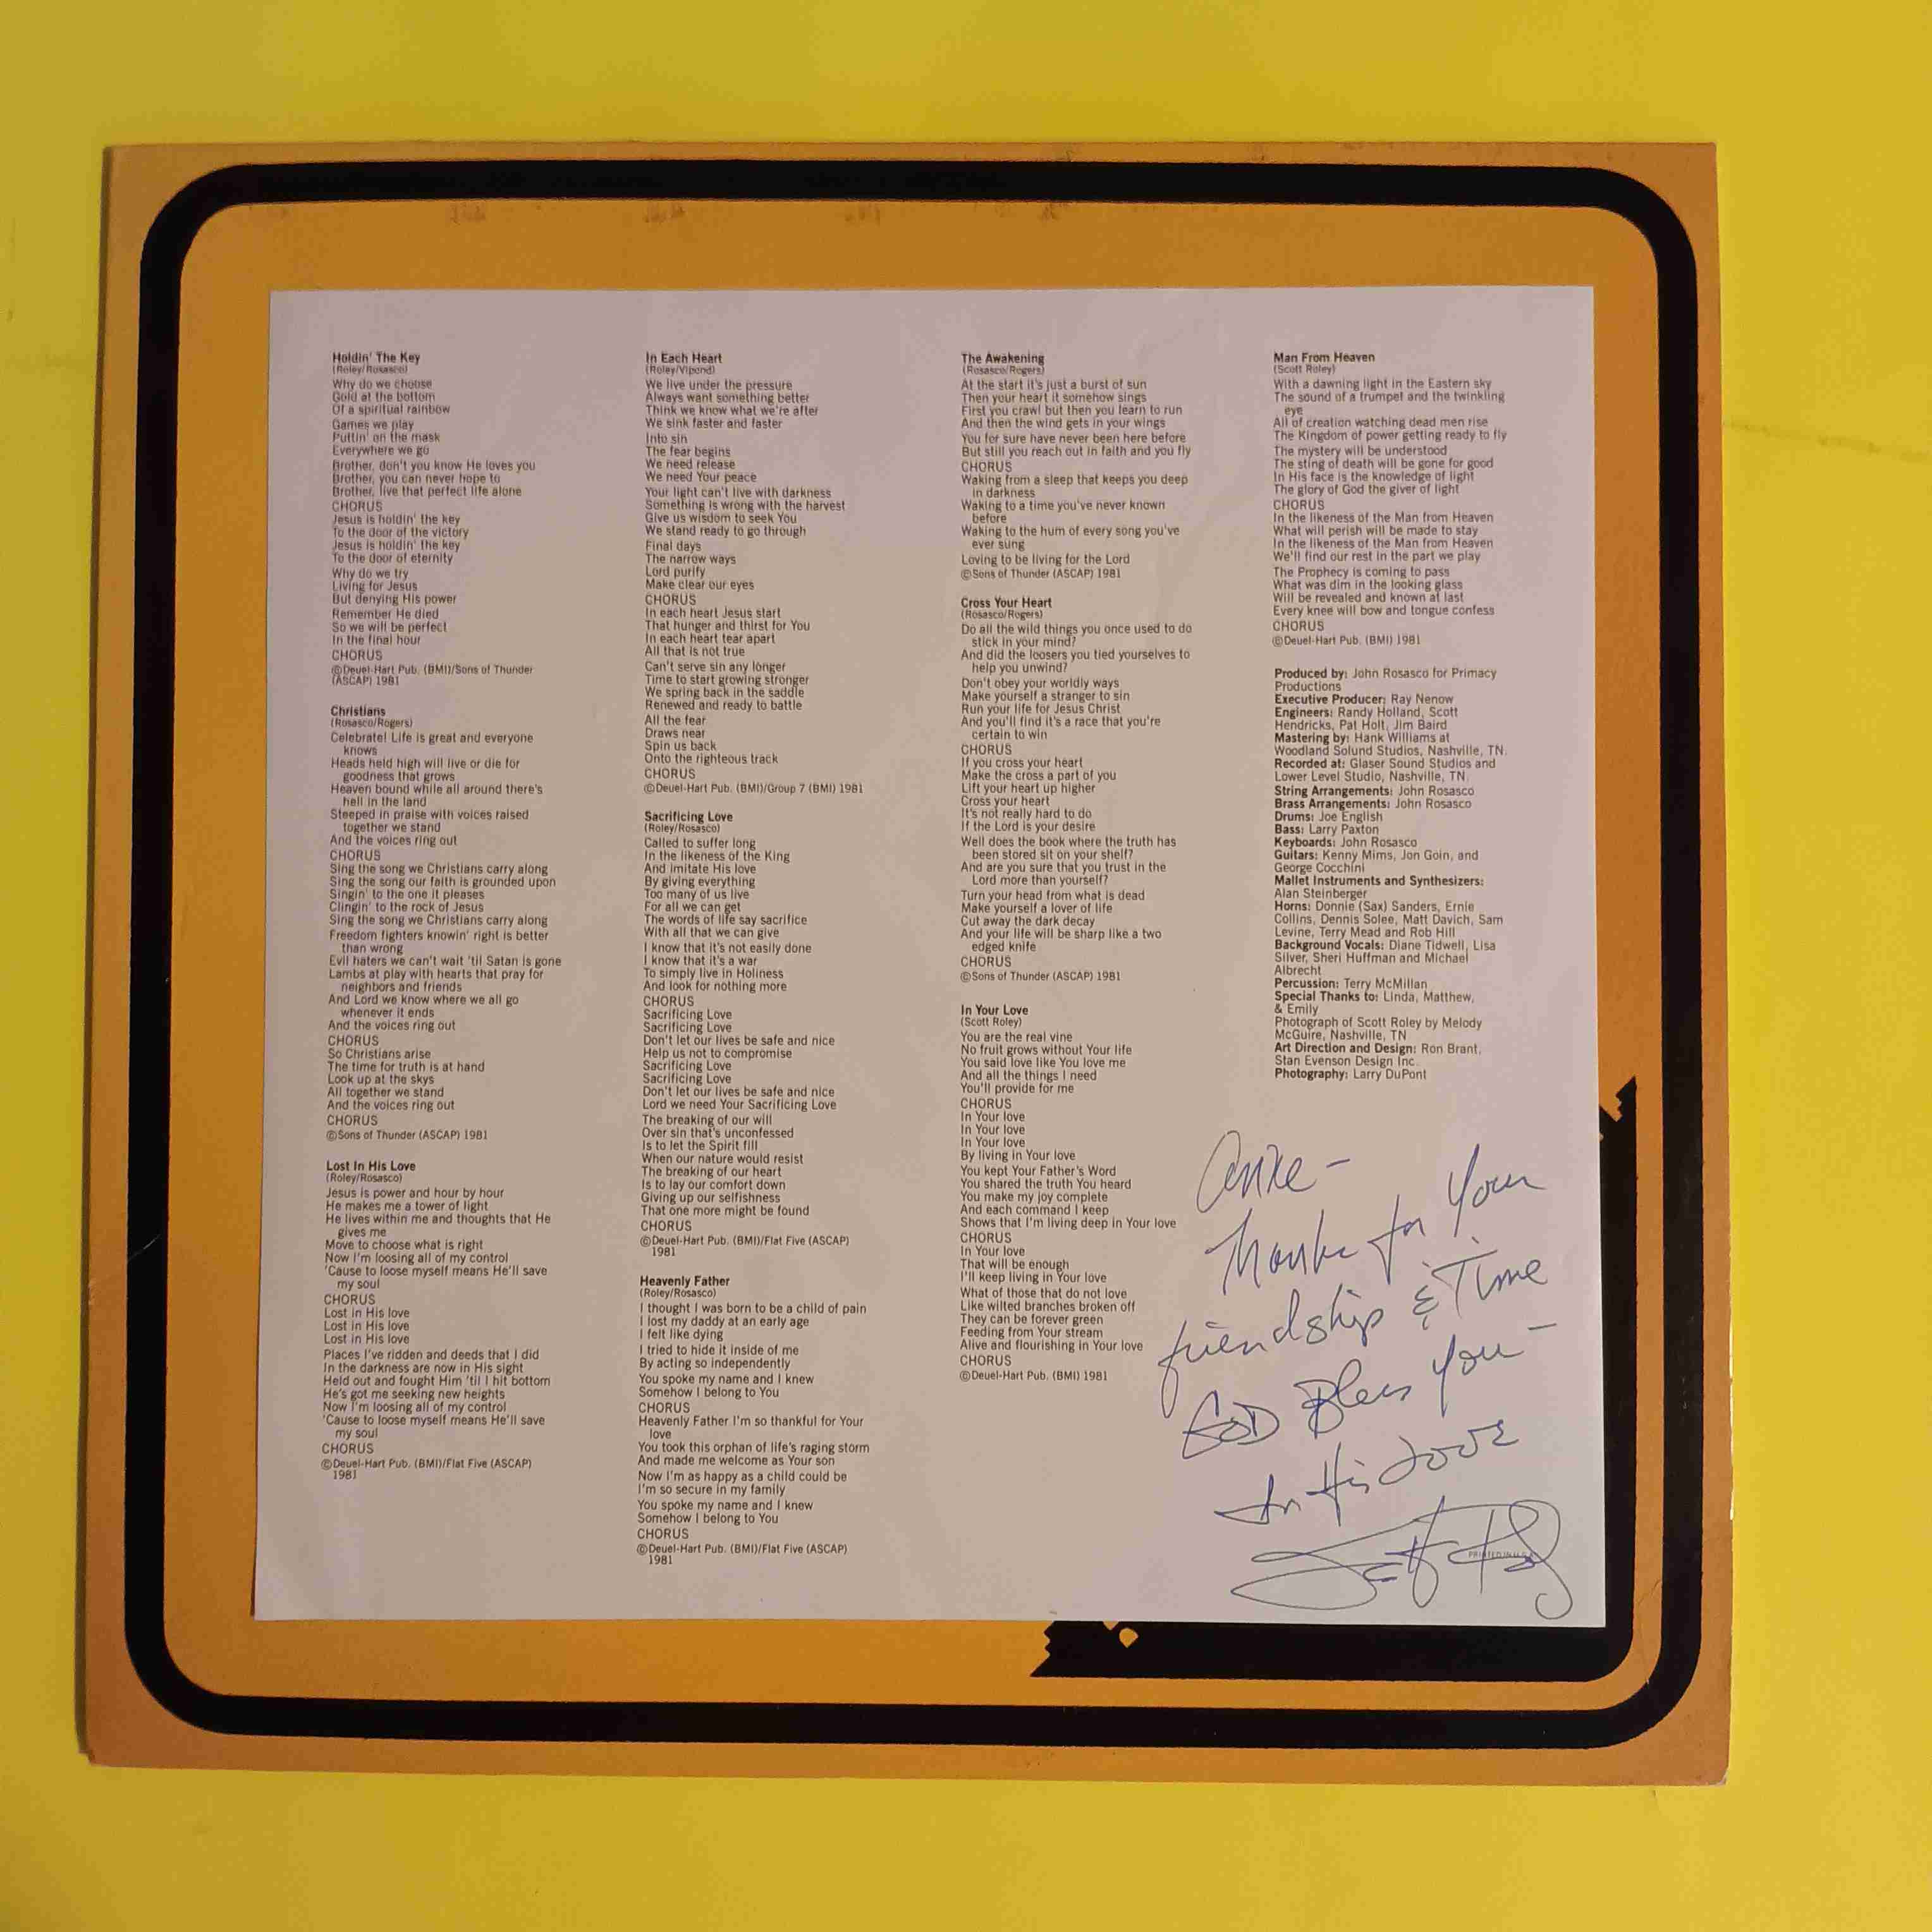 Holdin' The Key
(Roley/Rosasco)
Why do we choose
Gold at the bottom
Of a spiritual rainbow
Games we play
Puttin' on the mask
Everywhere we go
Brother, don't you know He loves you
Brother, you can never hope to
Brother, live that perfect life alone
CHORUS
Jesus is holdin' the key
To the door of the victory
Jesus is holdin' the key
To the door of eternity
Why do we try
Living for Jesus
But denying His power
Remember He died
So we will be perfect
In the final hour
CHORUS
©Deuel-Hart Pub. (BMI)/Sons of Thunder
(ASCAP) 1981
Christians
(Rosasco/Rogers)
Celebrate! Life is great and everyone
knows
Heads held high will live or die for
goodness that grows
Heaven bound while all around there's
hell in the land
Steeped in praise with voices raised
together we stand
And the voices ring out
CHORUS
Sing the song we Christians carry along
Sing the song our faith is grounded upon
Singin' to the one it pleases
Clingin' to the rock of Jesus
Sing the song we Christians carry along
Freedom fighters knowin' right is better
than wrong
Evil haters we can't wait 'til Satan is gone
Lambs at play with hearts that pray for
neighbors and friends
And Lord we know where we all go
whenever it ends
And the voices ring out
CHORUS
So Christians arise
The time for truth is at hand
Look up at the skys
All together we stand
And the voices ring out
CHORUS
©Sons of Thunder (ASCAP) 1981
Lost In His Love
(Roley/Rosasco)
Jesus is power and hour by hour
He makes me a tower of light
He lives within me and thoughts that He
gives me
Move to choose what is right
Now I'm loosing all of my control
'Cause to loose myself means He'll save
my soul
CHORUS
Lost in His love
Lost in His love
Lost in His love
Places I've ridden and deeds that I did
In the darkness are now in His sight
Held out and fought Him 'til I hit bottom
He's got me seeking new heights
Now I'm loosing all of my control
'Cause to loose myself means He'll save
my soul
CHORUS
©Deuel-Hart Pub. (BMI)/Flat Five (ASCAP)
1981
In Each Heart
(Roley/Vipond)
We live under the pressure
Always want something better
Think we know what we're after
We sink faster and faster
Into sin
The fear begins
We need release
We need Your peace
Your light can't live with darkness
Something is wrong with the harvest
Give us wisdom to seek You
We stand ready to go through
Final days
The narrow ways
Lord purify
Make clear our eyes
CHORUS
In each heart Jesus start
That hunger and thirst for You
In each heart tear apart
All that is not true
Can't serve sin any longer
Time to start growing stronger
We spring back in the saddle
Renewed and ready to battle
All the fear
Draws near
Spin us back
Onto the righteous track
CHORUS
©Deuel-Hart Pub. (BMI)/Group 7 (BMI) 1981
Sacrificing Love
(Roley/Rosasco)
Called to suffer long
In the likeness of the King
And imitate His love
By giving everything
Too many of us live
For all we can get
The words of life say sacrifice
With all that we can give
I know that it's not easily done
I know that it's a war
To simply live in Holiness
And look for nothing more
CHORUS
Sacrificing Love
Sacrificing Love
Don't let our lives be safe and nice
Help us not to compromise
Sacrificing Love
Sacrificing Love
Don't let our lives be safe and nice
Lord we need Your Sacrificing Love
The breaking of our will
Over sin that's unconfessed
Is to let the Spirit fill
When our nature would resist
The breaking of our heart
Is to lay our comfort down
Giving up our selfishness
That one more might be found
CHORUS
©Deuel-Hart Pub. (BMI)/Flat Five (ASCAP)
1981
Heavenly Father
(Roley/Rosasco)
I thought I was born to be a child of pain
I lost my daddy at an early age
I felt like dying
I tried to hide it inside of me
By acting so independently
You spoke my name and I knew
Somehow I belong to You
CHORUS
Heavenly Father I'm so thankful for Your
love
You took this orphan of life's raging storm
And made me welcome as Your son
Now I'm as happy as a child could be
I'm so secure in my family
You spoke my name and I knew
Somehow I belong to You
CHORUS
©Deuel-Hart Pub. (BMI)/Flat Five (ASCAP)
1981
The Awakening
(Rosasco/Rogers)
At the start it's just a burst of sun
Then your heart it somehow sings
First you crawl but then you learn to run
And then the wind gets in your wings
You for sure have never been here before
But still you reach out in faith and you fly
CHORUS
Waking from a sleep that keeps you deep
in darkness
Waking to a time you've never known
before
Waking to the hum of every song you've
ever sung
Loving to be living for the Lord
©Sons of Thunder (ASCAP) 1981
Cross Your Heart
(Rosasco/Rogers)
Do all the wild things you once used to do
stick in your mind?
And did the loosers you tied yourselves to
help you unwind?
Don't obey your worldly ways
Make yourself a stranger to sin
Run your life for Jesus Christ
And you'll find it's a race that you're
certain to win
CHORUS
If you cross your heart
Make the cross a part of you
Lift your heart up higher
Cross your heart
It's not really hard to do
If the Lord is your desire
Well does the book where the truth has
been stored sit on your shelf?
And are you sure that you trust in the
Lord more than yourself?
Turn your head from what is dead
Make yourself a lover of life
Cut away the dark decay
And your life will be sharp like a two
edged knife
CHORUS
©Sons of Thunder (ASCAP) 1981
In Your Love
(Scott Roley)
You are the real vine
No fruit grows without Your life
You said love like You love me
And all the things I need
You'll provide for me
CHORUS
In Your love
In Your love
In Your love
By living in Your love
You kept Your Father's Word
You shared the truth You heard
You make my joy complete
And each command I keep
Shows that I'm living deep in Your love
CHORUS
In Your love
That will be enough
I'll keep living in Your love
What of those that do not love
Like wilted branches broken off
They can be forever green
Feeding from Your stream
Alive and flourishing in Your love
CHORUS
©Deuel-Hart Pub. (BMI) 1981
Man From Heaven
(Scott Roley)
With a dawning light in the Eastern sky
The sound of a trumpet and the twinkling
eye
All of creation watching dead men rise
The Kingdom of power getting ready to fly
The mystery will be understood
The sting of death will be gone for good
In His face is the knowledge of light
The glory of God the giver of light
CHORUS
In the likeness of the Man from Heaven
What will perish will be made to stay
In the likeness of the Man from Heaven
We'll find our rest in the part we play
The Prophecy is coming to pass
What was dim in the looking glass
Will be revealed and known at last
Every knee will bow and tongue confess
CHORUS
©Deuel-Hart Pub. (BMI) 1981
Produced by: John Rosasco for Primacy
Productions
Executive Producer: Ray Nenow
Engineers: Randy Holland, Scott
Hendricks, Pat Holt, Jim Baird
Mastering by: Hank Williams at
Woodland Solund Studios, Nashville, TN.
Recorded at: Glaser Sound Studios and
Lower Level Studio, Nashville, TN
String Arrangements: John Rosasco
Brass Arrangements: John Rosasco
Drums: Joe English
Bass: Larry Paxton
Keyboards: John Rosasco
Guitars: Kenny Mims, Jon Goin, and
George Cocchini
Mallet Instruments and Synthesizers:
Alan Steinberger
Horns: Donnie (Sax) Sanders, Ernie
Collins, Dennis Solee, Matt Davich, Sam
Levine, Terry Mead and Rob Hill
Background Vocals: Diane Tidwell, Lisa
Silver, Sheri Huffman and Michael
Albrecht
Percussion: Terry McMillan
Special Thanks to: Linda, Matthew,
& Emily
Photograph of Scott Roley by Melody
McGuire, Nashville, TN
Art Direction and Design: Ron Brant,
Stan Evenson Design Inc.
Photography: Larry DuPont
Thanks for Your
friendship & Time
GOD Bless You -
In His Love
PRINTED IN U.S.A.